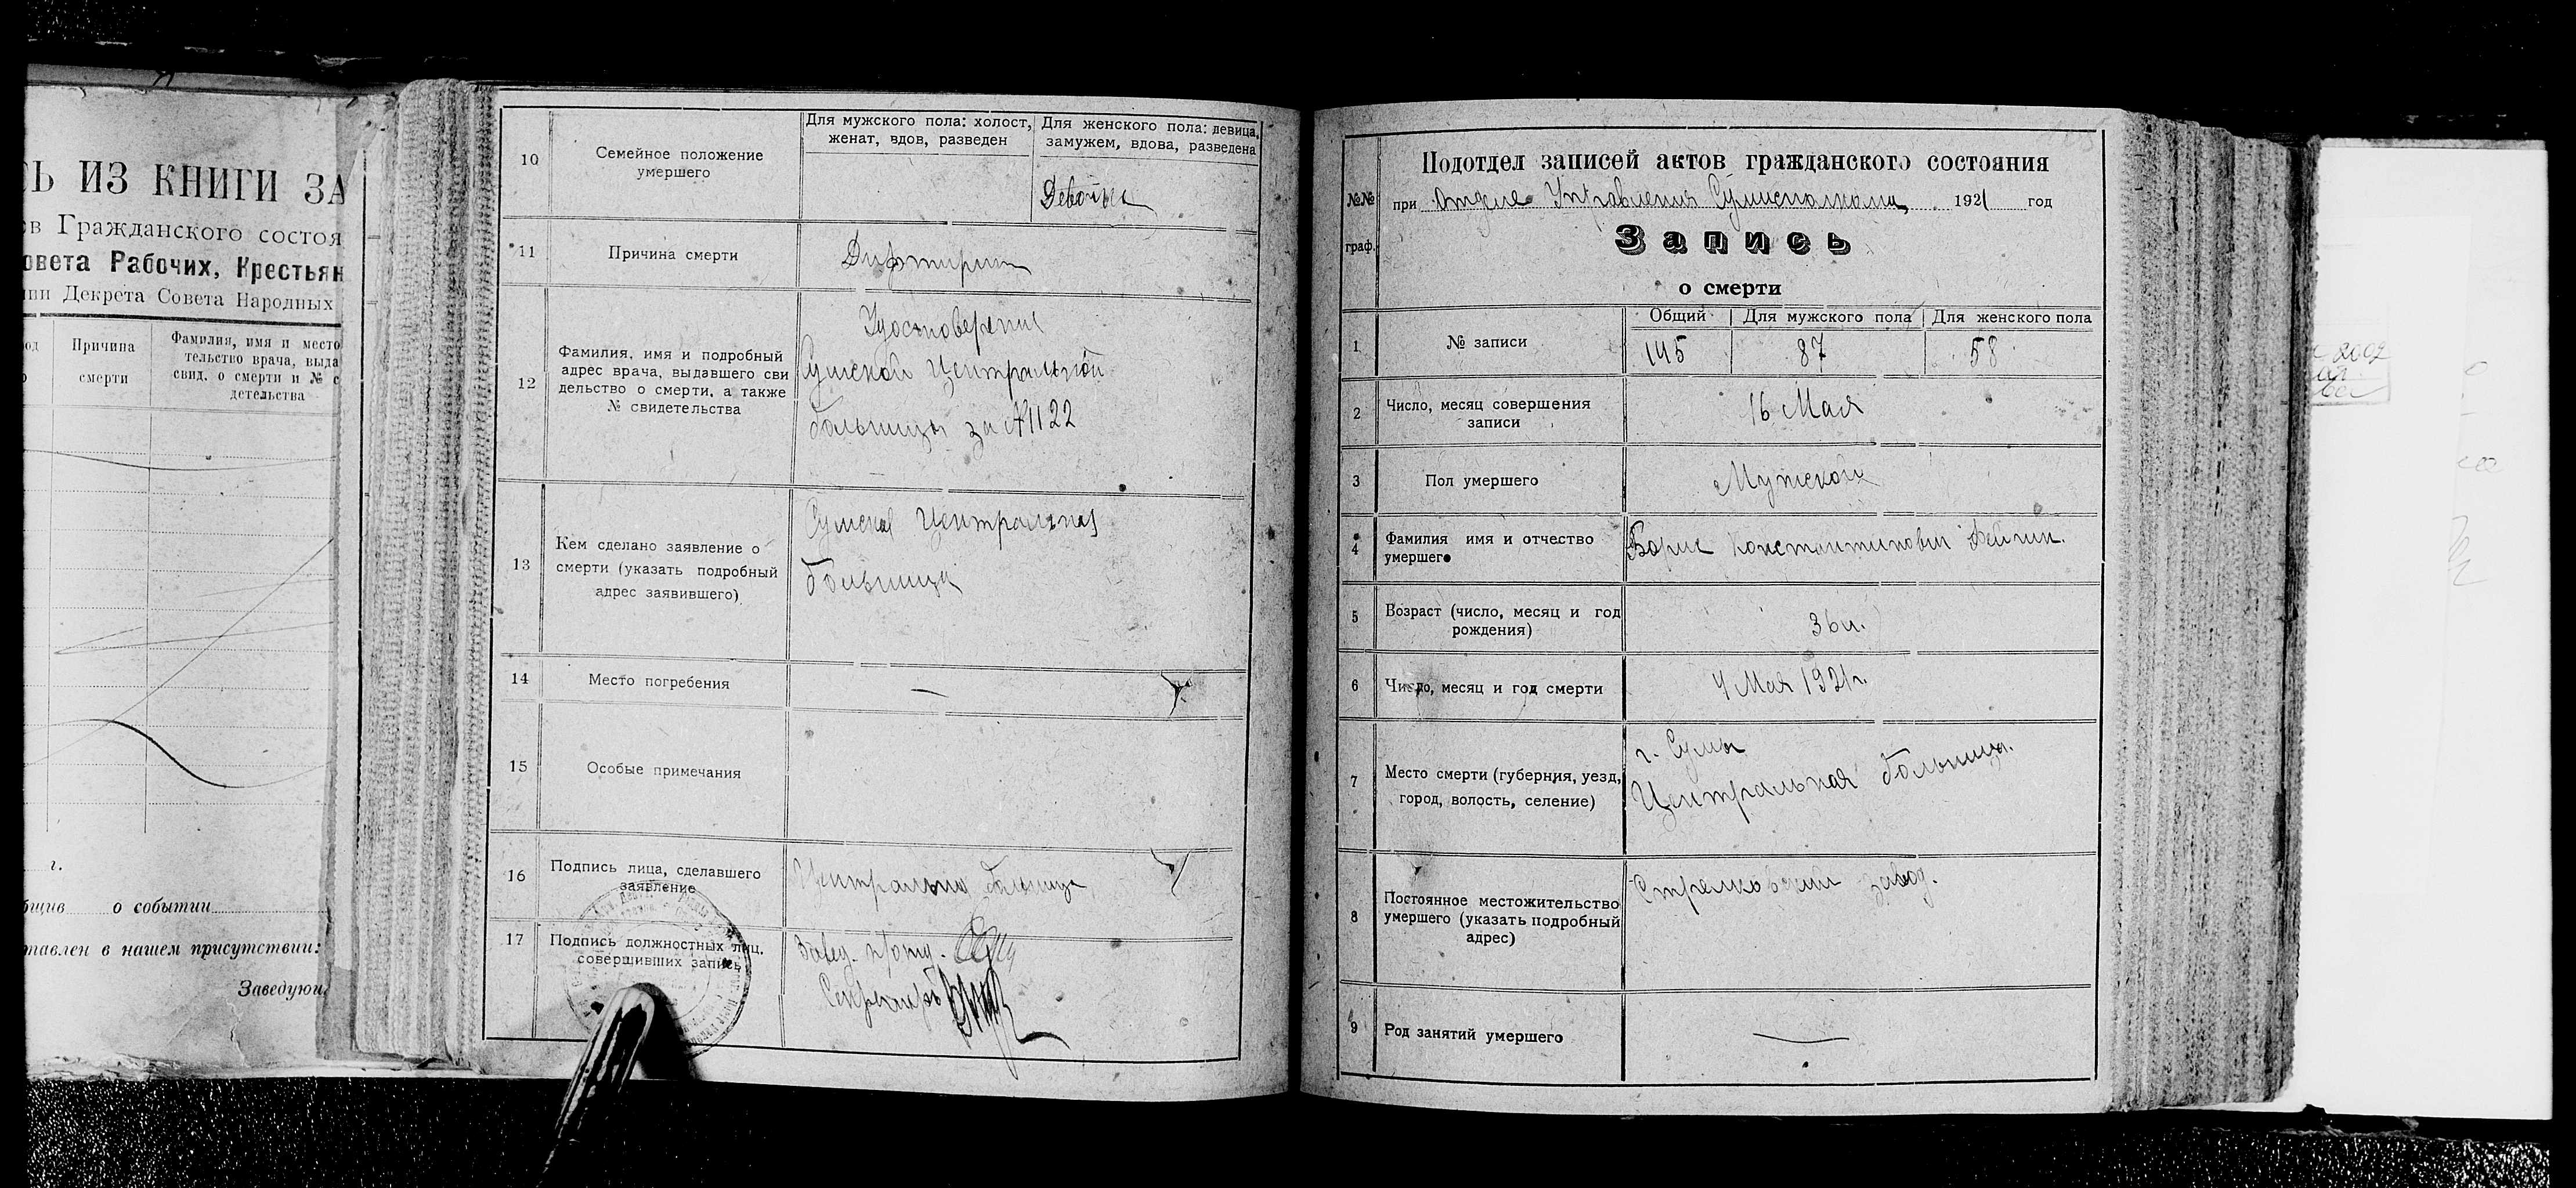 ИЗ КНИГИ ЗА
в Гражданского состоя
овета Рабочих, Крестьян
Декрета Совета Народных
Причина
смерти
Фамилия, имя и место
тельство врача, выда
свид. о смерти и № с
детельства
г.
о событии
тавлен в нашем присутствии:
Заведующ
10
Семейное положение
умершего
Для мужского пола: холост,
женат, вдов, разведен
Для женского пола: девица,
замужем, вдова, разведена
Девочка
11
Причина смерти
Дифтерит
12
Фамилия, имя и подробный
адрес врача, выдавшего сви
дельство о смерти, а также
№ свидетельства
Удостоверения
Сумской Центральной
больницы за №1122
13
Кем сделано заявление о
смерти (указать подробный
адрес заявившего)
Сумская Центральная
больница
14
Место погребения
—
15
Особые примечания
16
Подпись лица, сделавшего
заявление
Центральна больница
17
Подпись должностных лиц,
совершивших запись
Завед. п/отд.
Секретарь
№№
граф.
Подотдел записей актов гражданского состояния
при Отделе Управления Сумисполкома, 1921 год
Запись
о смерти
1
№ записи
Общий
Для мужского пола
Для женского пола
145
87
58
2
Число, месяц совершения
записи
16 Мая
3
Пол умершего
Мужской
4
Фамилия имя и отчество
умершего
Борис Константинович
5
Возраст (число, месяц и год
рождения)
36
6
Число, месяц и год смерти
4 Мая 1921г.
7
Место смерти (губерния, уезд,
город, волость, селение)
г. Сумы
Центральная больница.
8
Постоянное местожительство
умершего (указать подробный
адрес)
завод.
9
Род занятий умершего
—